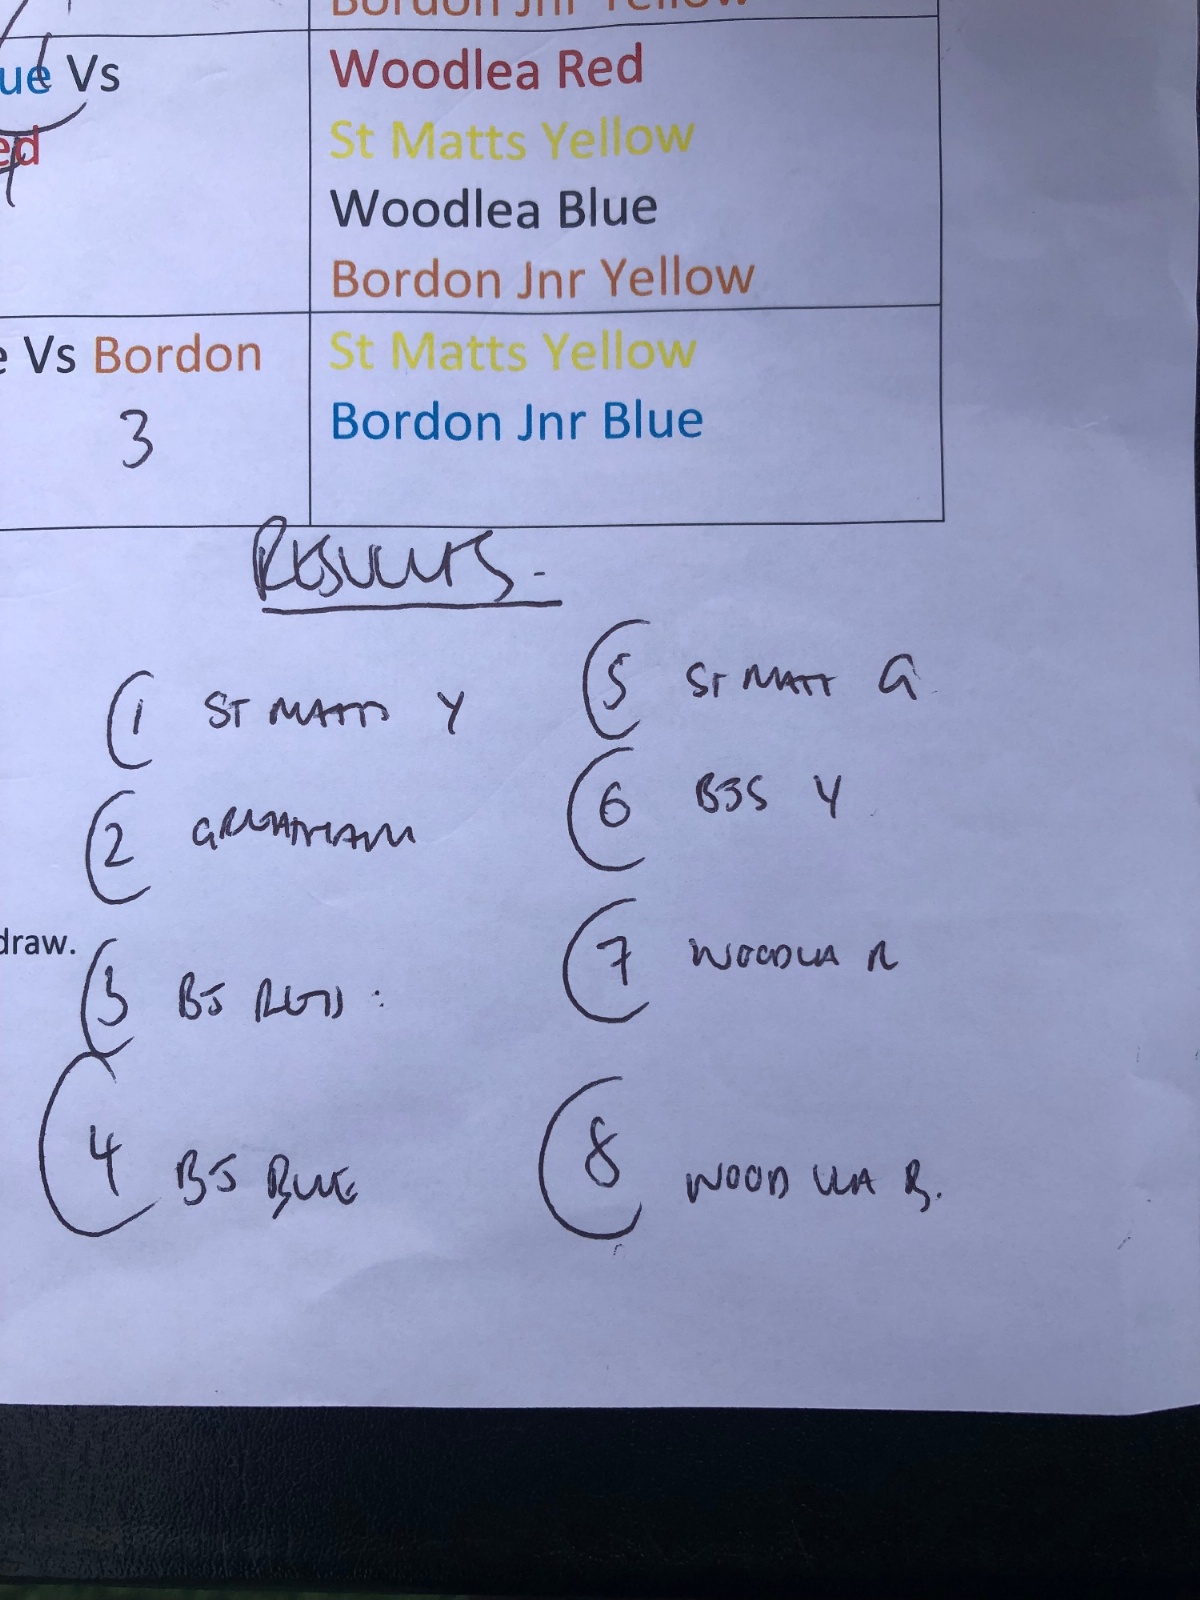 Bordon Jnr Yellow
ue Vs
Woodlea Red
ed
St Matts Yellow
Woodlea Blue
Bordon Jnr Yellow
e Vs Bordon
3
St Matts Yellow
Bordon Jnr Blue
RESULTS.
1 ST MATTS Y
2 GREATHAM
draw.
3 BJ RED :
4 BJ BLUE
5 ST MATT G
6 BJS Y
7 WOODLEA R
8 WOODLEA B.